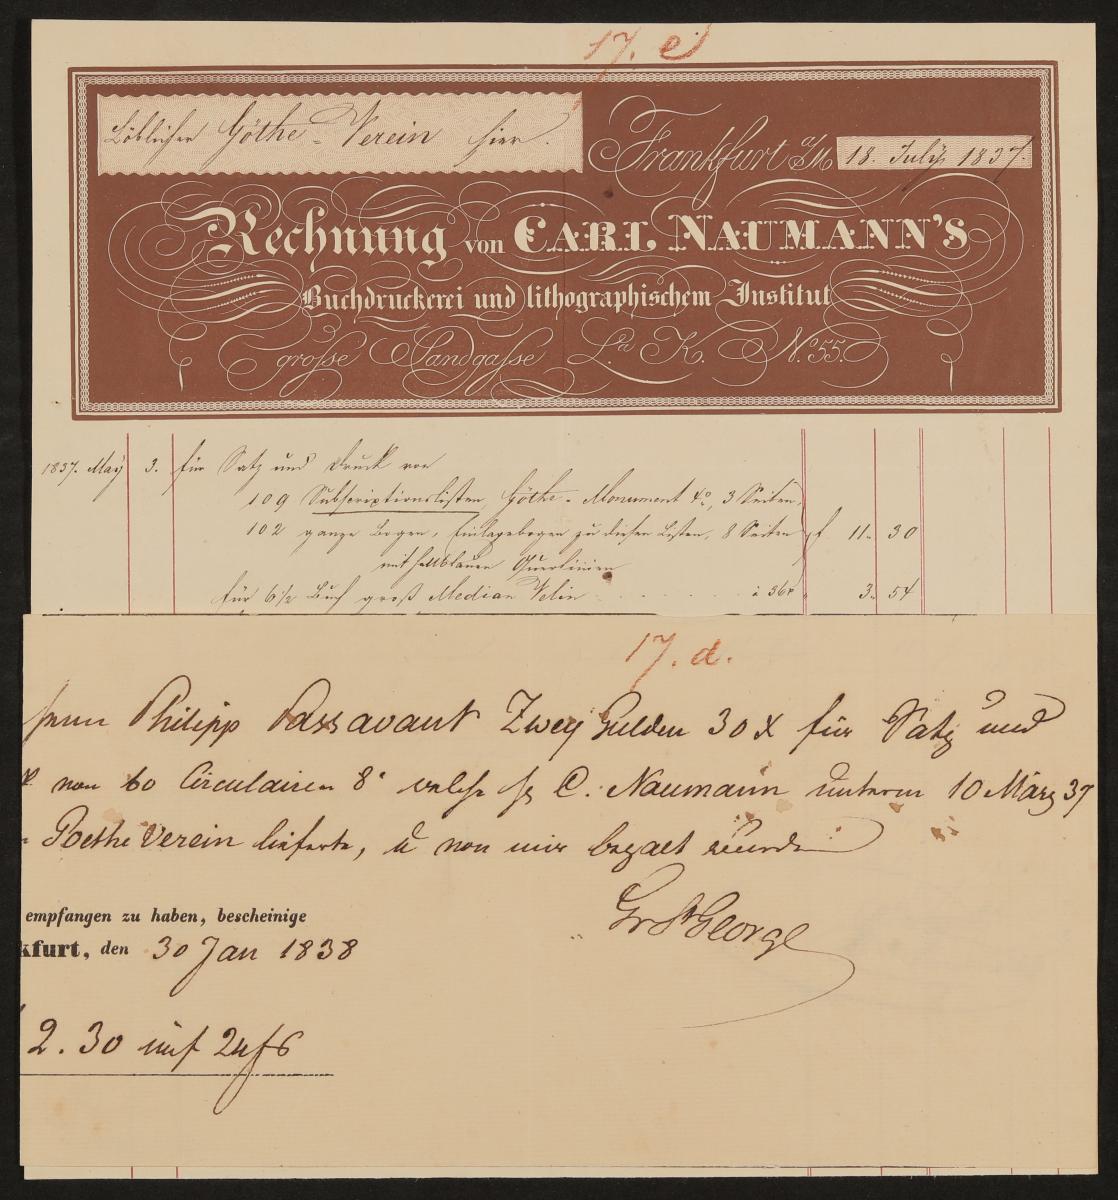 17. e
Löblicher Göthe-Verein hier.
Frankfurt a/M 18. July 1837.
Rechnung von CARL NAUMANN'S
Buchdruckerei und lithographischem Institut
grosse Sandgasse L.ra K. No. 55.
1837. May 3. für Satz und Druck von
109 Subscriptionslisten, Göthe-Monument 4o, 3 Seiten,
102 ganze Bogen, Einlagebogen zu diesen Listen, 8 Seiten f 11. 30
mit hellblauen Querlinien
für 6 1/2 Buch groß Median Velin à 36x 3. 54
17. d.
Herrn Philipp Passavant Zwey Gulden 30 x für Satz und
von 60 Circulairen 8o welche H C. Naumann unterm 10 März 37
Goethe Verein lieferte, u von mir bezalt wurden
empfangen zu haben, bescheinige
kfurt, den 30 Jan 1838
Gr St George
2. 30 im 24 f